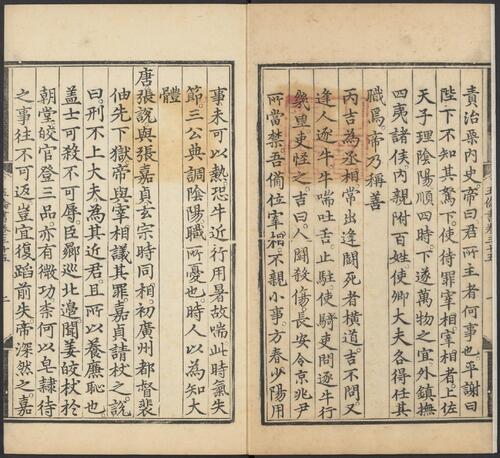 責治粟內史帝曰君所主者何事也平謝曰
陛下不知其駑下使待罪宰相宰相者上佐
天子理陰陽順四時下遂萬物之宜外鎮撫
四夷諸侯內親附百姓使卿大夫各得任其
職焉帝乃稱善
丙吉為丞相常出逢鬪死者橫道吉不問又
逢人逐牛牛喘吐舌止駐使騎吏問逐牛行
幾里吏怪之吉曰人鬪殺傷長安令京兆尹
所當禁吾備位宰相不親小事方春少陽用
事未可以熱恐牛近行用暑故喘此時氣失
節三公典調陰陽職所憂也時人以為知大
體
唐張說與張嘉貞玄宗時同相初廣州都督裴
伷先下獄帝與宰相議其罪嘉貞請杖之說
曰刑不上大夫為其近君且所以養廉恥也
盖士可殺不可辱臣曏巡北邊聞姜皎杖於
朝堂皎官登三品亦有微功柰何以皂隷待
之事往不可返豈宜復蹈前失帝深然之嘉